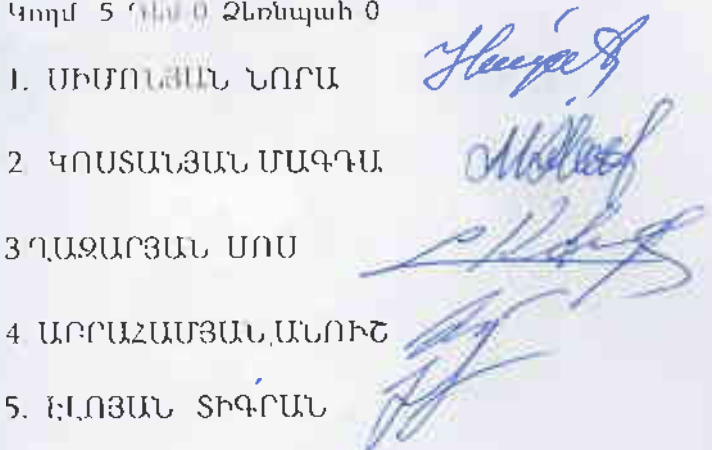 Կողմ 5 Դեմ 0 Ձեռնպահ 0
1. ՍԻՄՈՆՅԱՆ ՆՈՐԱ
2 ԿՈՍՏԱՆՅԱՆ ՄԱԳԴԱ
3 ՂԱԶԱՐՅԱՆ ՍՈՍ
4. ԱԲՐԱՀԱՄՅԱՆ ԱՆՈՒՇ
5. ԷԼՈՅԱՆ ՏԻԳՐԱՆ